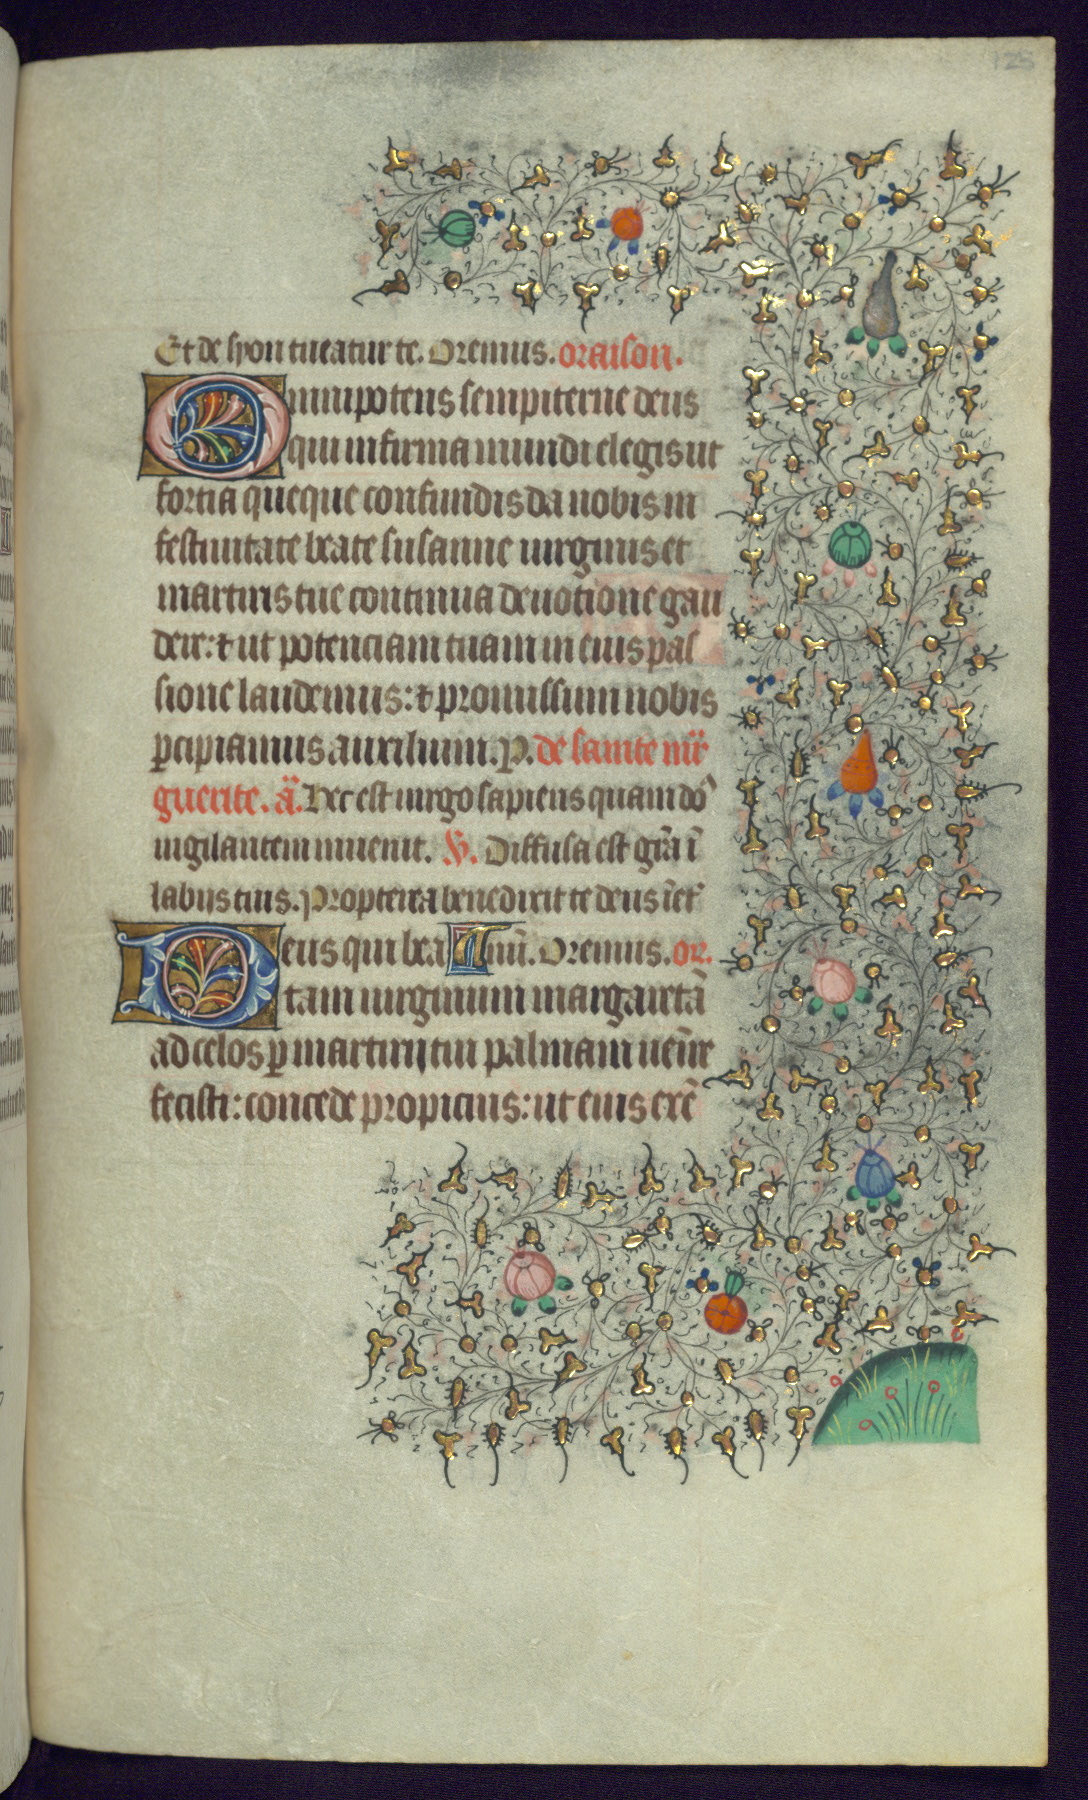 125
Et de syon tueatur te. Oremus. oraison.
Omnipotens sempiterne deus
qui infirma mundi elegis ut
fortia queque confundis da nobis in
festiuitate beate susanne uirginis et
martiris tue continua deuotione gau
dere: ⁊ ut potenciam tuam in eius pas
sione laudemus: ⁊ promissum nobis
ꝑcipiamus auxilium. P. de sainte mar̄
guerite. an̄. Hec est uirgo sapiens quam dōs
uigilantem inuenit. V. Diffusa est gr̄a ī
labijs tuis. Propterea benedixit te deus ī et̄
Deus qui bea nū. Oremus. or.
tam uirginum margaretā
ad celos ꝑ martirij tui palmam uenīre
fecisti: concede propicius: ut eius exē